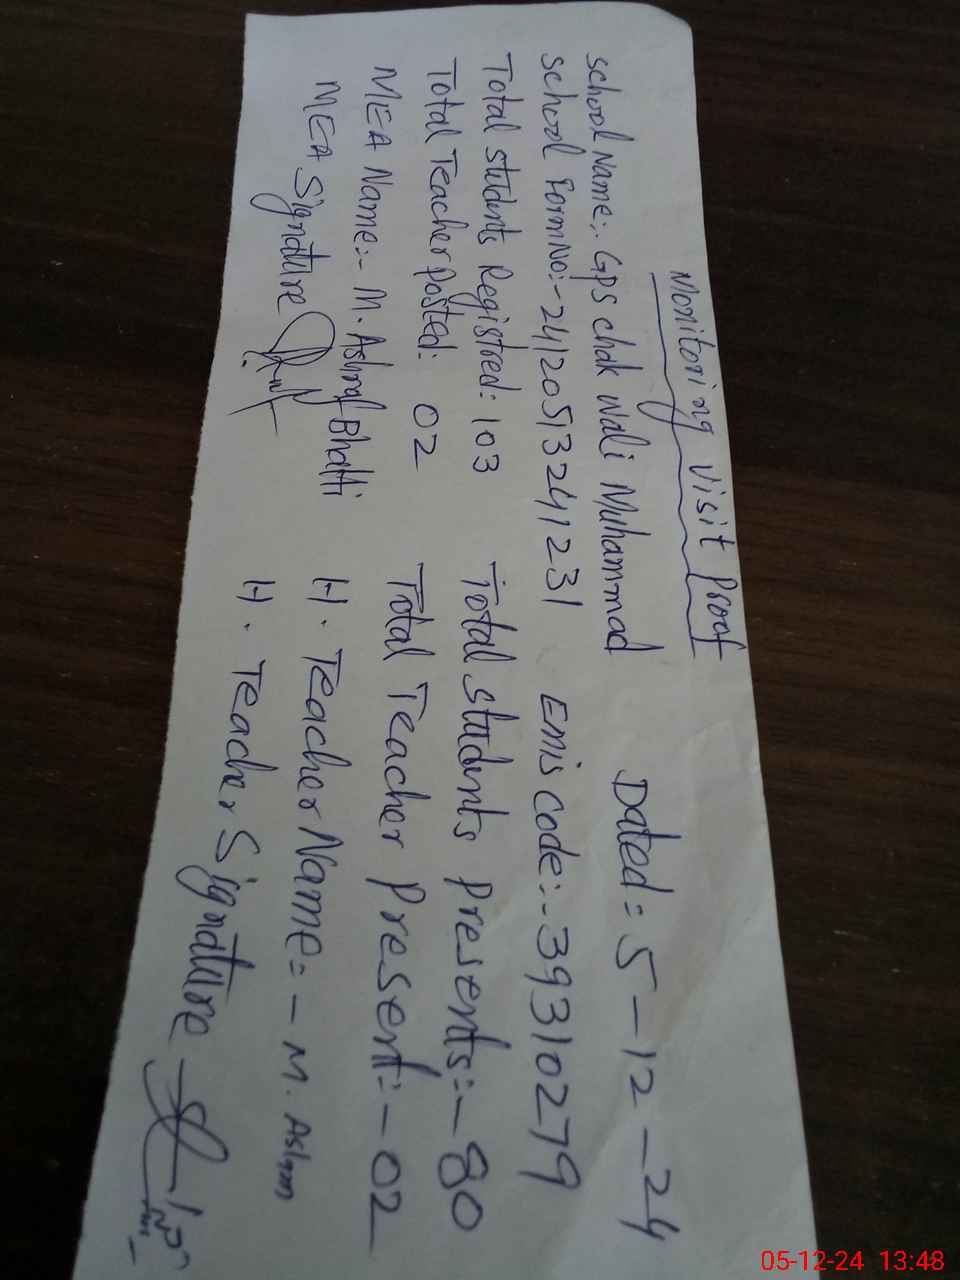 Monitoring Visit Proof
School Name:- GPS chak Wali Muhammad Dated = 5-12-24
School Form No:- 24120513241231 Emis Code:- 39310279
Total Students Registred: 103 Total Students Presents:- 80
Total Teacher Posted: 02 Total Teacher Present:- 02
MEA Name:- M. Ashraf Bhatti H. Teacher Name = - M. Aslam
MEA Signature H. Teacher Signature
05-12-24 13:48